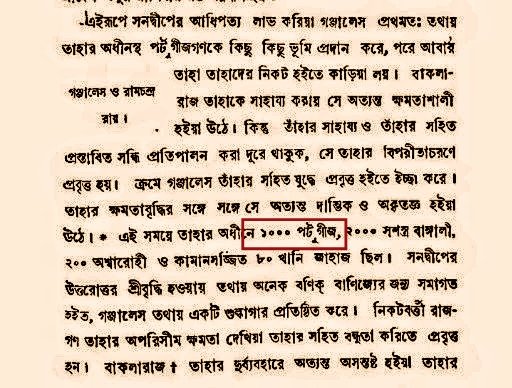 -এইরূপে সনদ্বীপের আধিপত্য লাভ করিয়া গঞ্জালেস প্রথমতঃ তথায়
তাহার অধীনস্থ পর্টুগীজগণকে কিছু কিছু ভূমি প্রদান করে, পরে আবার
তাহা তাহাদের নিকট হইতে কাড়িয়া লয়। বাকলা-
গঞ্জালেস ও রামচন্দ্র রায়।
রাজ তাহাকে সাহায্য করায় সে অত্যন্ত ক্ষমতাশালী
হইয়া উঠে। কিন্তু তাঁহার সাহায্য ও তাঁহার সহিত
প্রস্তাবিত সন্ধি প্রতিপালন করা দূরে থাকুক, সে তাহার বিপরীতাচরণে
প্রবৃত্ত হয়। ক্রমে গঞ্জালেস তাঁহার সহিত যুদ্ধে প্রবৃত্ত হইতে ইচ্ছা করে।
তাহার ক্ষমতাবৃদ্ধির সঙ্গে সঙ্গে সে অত্যন্ত দাম্ভিক ও অকৃতজ্ঞ হইয়া
উঠে। * এই সময়ে তাহার অধীনে ১০০০ পর্টুগীজ, ২০০০ সশস্ত্র বাঙ্গালী,
২০০ অশ্বারোহী ও কামানসজ্জিত ৮০ খানি জাহাজ ছিল। সনদ্বীপের
উত্তরোত্তর শ্রীবৃদ্ধি হওয়ায় তথায় অনেক বণিক্ বাণিজ্যের জন্য সমাগত
হইত, গঞ্জালেস তথায় একটি শুল্কাগার প্রতিষ্ঠিত করে। নিকটবর্ত্তী রাজ-
গণ তাহার অপরিসীম ক্ষমতা দেখিয়া তাহার সহিত বন্ধুতা করিতে প্রবৃত্ত
হন। বাকলারাজ † তাহার দুর্ব্যবহারে অত্যন্ত অসন্তুষ্ট হইয়া তাহার